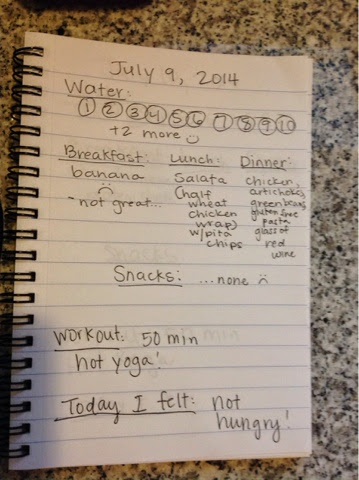 July 9, 2014
Water:
1 2 3 4 5 6 7 8 9 10
+2 more
Breakfast:
banana
- not great...
Lunch:
Salata
(half
wheat
chicken
wrap)
w/pita
chips
Dinner:
chicken,
artichokes
green beans
gluten free
pasta
glass of
red
wine
Snacks: ...none
Workout: 50 min
hot yoga!
Today I felt: not
hungry!